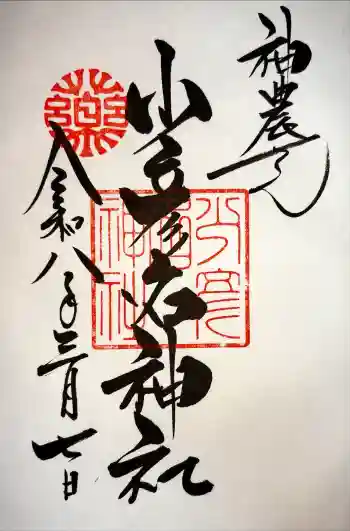 神農さん
少彦名神社
令和八年三月七日
少彦名神社